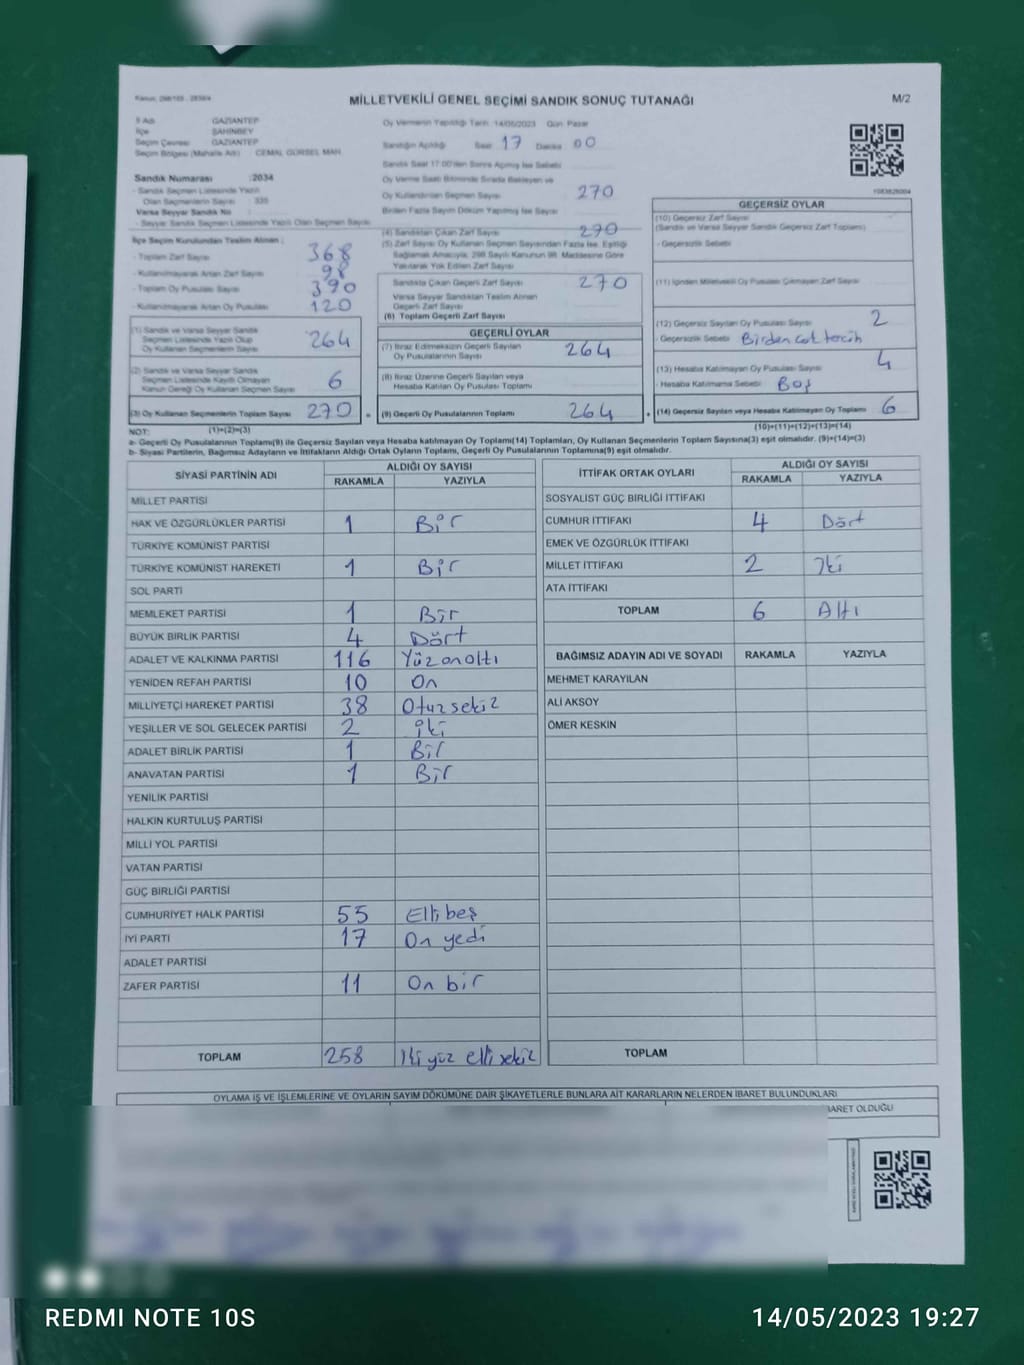 Kanun: 298/105 - 2839/4
MİLLETVEKİLİ GENEL SEÇİMİ SANDIK SONUÇ TUTANAĞI
M/2
İl Adı : GAZİANTEP
İlçe : ŞAHİNBEY
Seçim Çevresi : GAZİANTEP
Seçim Bölgesi (Mahalle Adı) : CEMAL GÜRSEL MAH.
Sandık Numarası :2034
- Sandık Seçmen Listesinde Yazılı
Olan Seçmenlerin Sayısı : 335
Varsa Seyyar Sandık No
- Seyyar Sandık Seçmen Listesinde Yazılı Olan Seçmen Sayısı
Oy Vermenin Yapıldığı Tarih: 14/05/2023 Gün: Pazar
Sandığın Açıldığı Saat 17 Dakika 00
Sandık Saat 17:00'den Sonra Açılmış İse Sebebi
Oy Verme Saati Bitiminde Sırada Bekleyen ve
Oy Kullandırılan Seçmen Sayısı 270
Birden Fazla Sayım Döküm Yapılmış İse Sayısı
1083829004
İlçe Seçim Kurulundan Teslim Alınan ;
- Toplam Zarf Sayısı 368
- Kullanılmayarak Artan Zarf Sayısı 98
- Toplam Oy Pusulası Sayısı 390
- Kullanılmayarak Artan Oy Pusulası 120
(1) Sandık ve Varsa Seyyar Sandık
Seçmen Listesinde Yazılı Olup
Oy Kullanan Seçmenlerin Sayısı 264
(2) Sandık ve Varsa Seyyar Sandık
Seçmen Listesinde Kayıtlı Olmayan
Kanun Gereği Oy Kullanan Seçmen Sayısı 6
(3) Oy Kullanan Seçmenlerin Toplam Sayısı 270
(1)+(2)=(3)
(4) Sandıktan Çıkan Zarf Sayısı 270
(5) Zarf Sayısı Oy Kullanan Seçmen Sayısından Fazla İse, Eşitliği
Sağlamak Amacıyla, 298 Sayılı Kanunun 98. Maddesine Göre
Yakılarak Yok Edilen Zarf Sayısı
Sandıkta Çıkan Geçerli Zarf Sayısı 270
Varsa Seyyar Sandıktan Teslim Alınan
Geçerli Zarf Sayısı
(6) Toplam Geçerli Zarf Sayısı
GEÇERLİ OYLAR
(7) İtiraz Edilmeksizin Geçerli Sayılan
Oy Pusulalarının Sayısı 264
(8) İtiraz Üzerine Geçerli Sayılan veya
Hesaba Katılan Oy Pusulası Toplamı
= (9) Geçerli Oy Pusulalarının Toplamı 264
GEÇERSİZ OYLAR
(10) Geçersiz Zarf Sayısı
(Sandık ve Varsa Seyyar Sandık Geçersiz Zarf Toplamı)
- Geçersizlik Sebebi
(11) İçinden Milletvekili Oy Pusulası Çıkmayan Zarf Sayısı
(12) Geçersiz Sayılan Oy Pusulası Sayısı 2
- Geçersizlik Sebebi Birden çok tercih
(13) Hesaba Katılmayan Oy Pusulası Sayısı 4
- Hesaba Katılmama Sebebi Boş
+ (14) Geçersiz Sayılan veya Hesaba Katılmayan Oy Toplamı 6
(10)+(11)+(12)+(13)=(14)
NOT:
a- Geçerli Oy Pusulalarının Toplamı(9) ile Geçersiz Sayılan veya Hesaba katılmayan Oy Toplamı(14) Toplamları, Oy Kullanan Seçmenlerin Toplam Sayısına(3) eşit olmalıdır. (9)+(14)=(3)
b- Siyasi Partilerin, Bağımsız Adayların ve İttifakların Aldığı Ortak Oyların Toplamı, Geçerli Oy Pusulalarının Toplamına(9) eşit olmalıdır.
SİYASİ PARTİNİN ADI ALDIĞI OY SAYISI
RAKAMLA YAZIYLA
MİLLET PARTİSİ
HAK VE ÖZGÜRLÜKLER PARTİSİ 1 Bir
TÜRKİYE KOMÜNİST PARTİSİ
TÜRKİYE KOMÜNİST HAREKETİ 1 Bir
SOL PARTİ
MEMLEKET PARTİSİ 1 Bir
BÜYÜK BİRLİK PARTİSİ 4 Dört
ADALET VE KALKINMA PARTİSİ 116 Yüzonaltı
YENİDEN REFAH PARTİSİ 10 On
MİLLİYETÇİ HAREKET PARTİSİ 38 Otuzsekiz
YEŞİLLER VE SOL GELECEK PARTİSİ 2 iki
ADALET BİRLİK PARTİSİ 1 Bir
ANAVATAN PARTİSİ 1 Bir
YENİLİK PARTİSİ
HALKIN KURTULUŞ PARTİSİ
MİLLİ YOL PARTİSİ
VATAN PARTİSİ
GÜÇ BİRLİĞİ PARTİSİ
CUMHURİYET HALK PARTİSİ 55 Elli beş
İYİ PARTİ 17 On yedi
ADALET PARTİSİ
ZAFER PARTİSİ 11 On bir
TOPLAM 258 İki yüz elli sekiz
İTTİFAK ORTAK OYLARI ALDIĞI OY SAYISI
RAKAMLA YAZIYLA
SOSYALİST GÜÇ BİRLİĞİ İTTİFAKI
CUMHUR İTTİFAKI 4 Dört
EMEK VE ÖZGÜRLÜK İTTİFAKI
MİLLET İTTİFAKI 2 İki
ATA İTTİFAKI
TOPLAM 6 Altı
BAĞIMSIZ ADAYIN ADI VE SOYADI RAKAMLA YAZIYLA
MEHMET KARAYILAN
ALİ AKSOY
ÖMER KESKİN
TOPLAM
OYLAMA İŞ VE İŞLEMLERİNE VE OYLARIN SAYIM DÖKÜMÜNE DAİR ŞİKAYETLERLE BUNLARA AİT KARARLARIN NELERDEN İBARET BULUNDUKLARI
BARET OLDUĞU
REDMI NOTE 10S
14/05/2023 19:27